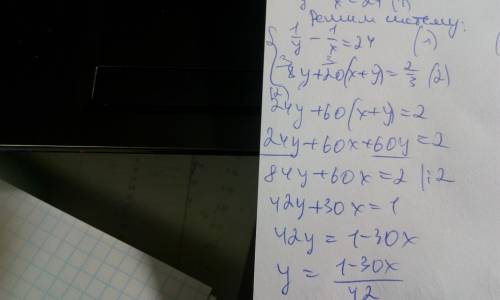 x = 24 (1)
Решим систему:
1/y - 1/x = 24 (1)
8y + 20(x+y) = 2/3 (2)
(2)
24y + 60(x+y) = 2
24y + 60x + 60y = 2
84y + 60x = 2 |:2
42y + 30x = 1
42y = 1 - 30x
y = (1 - 30x)/42